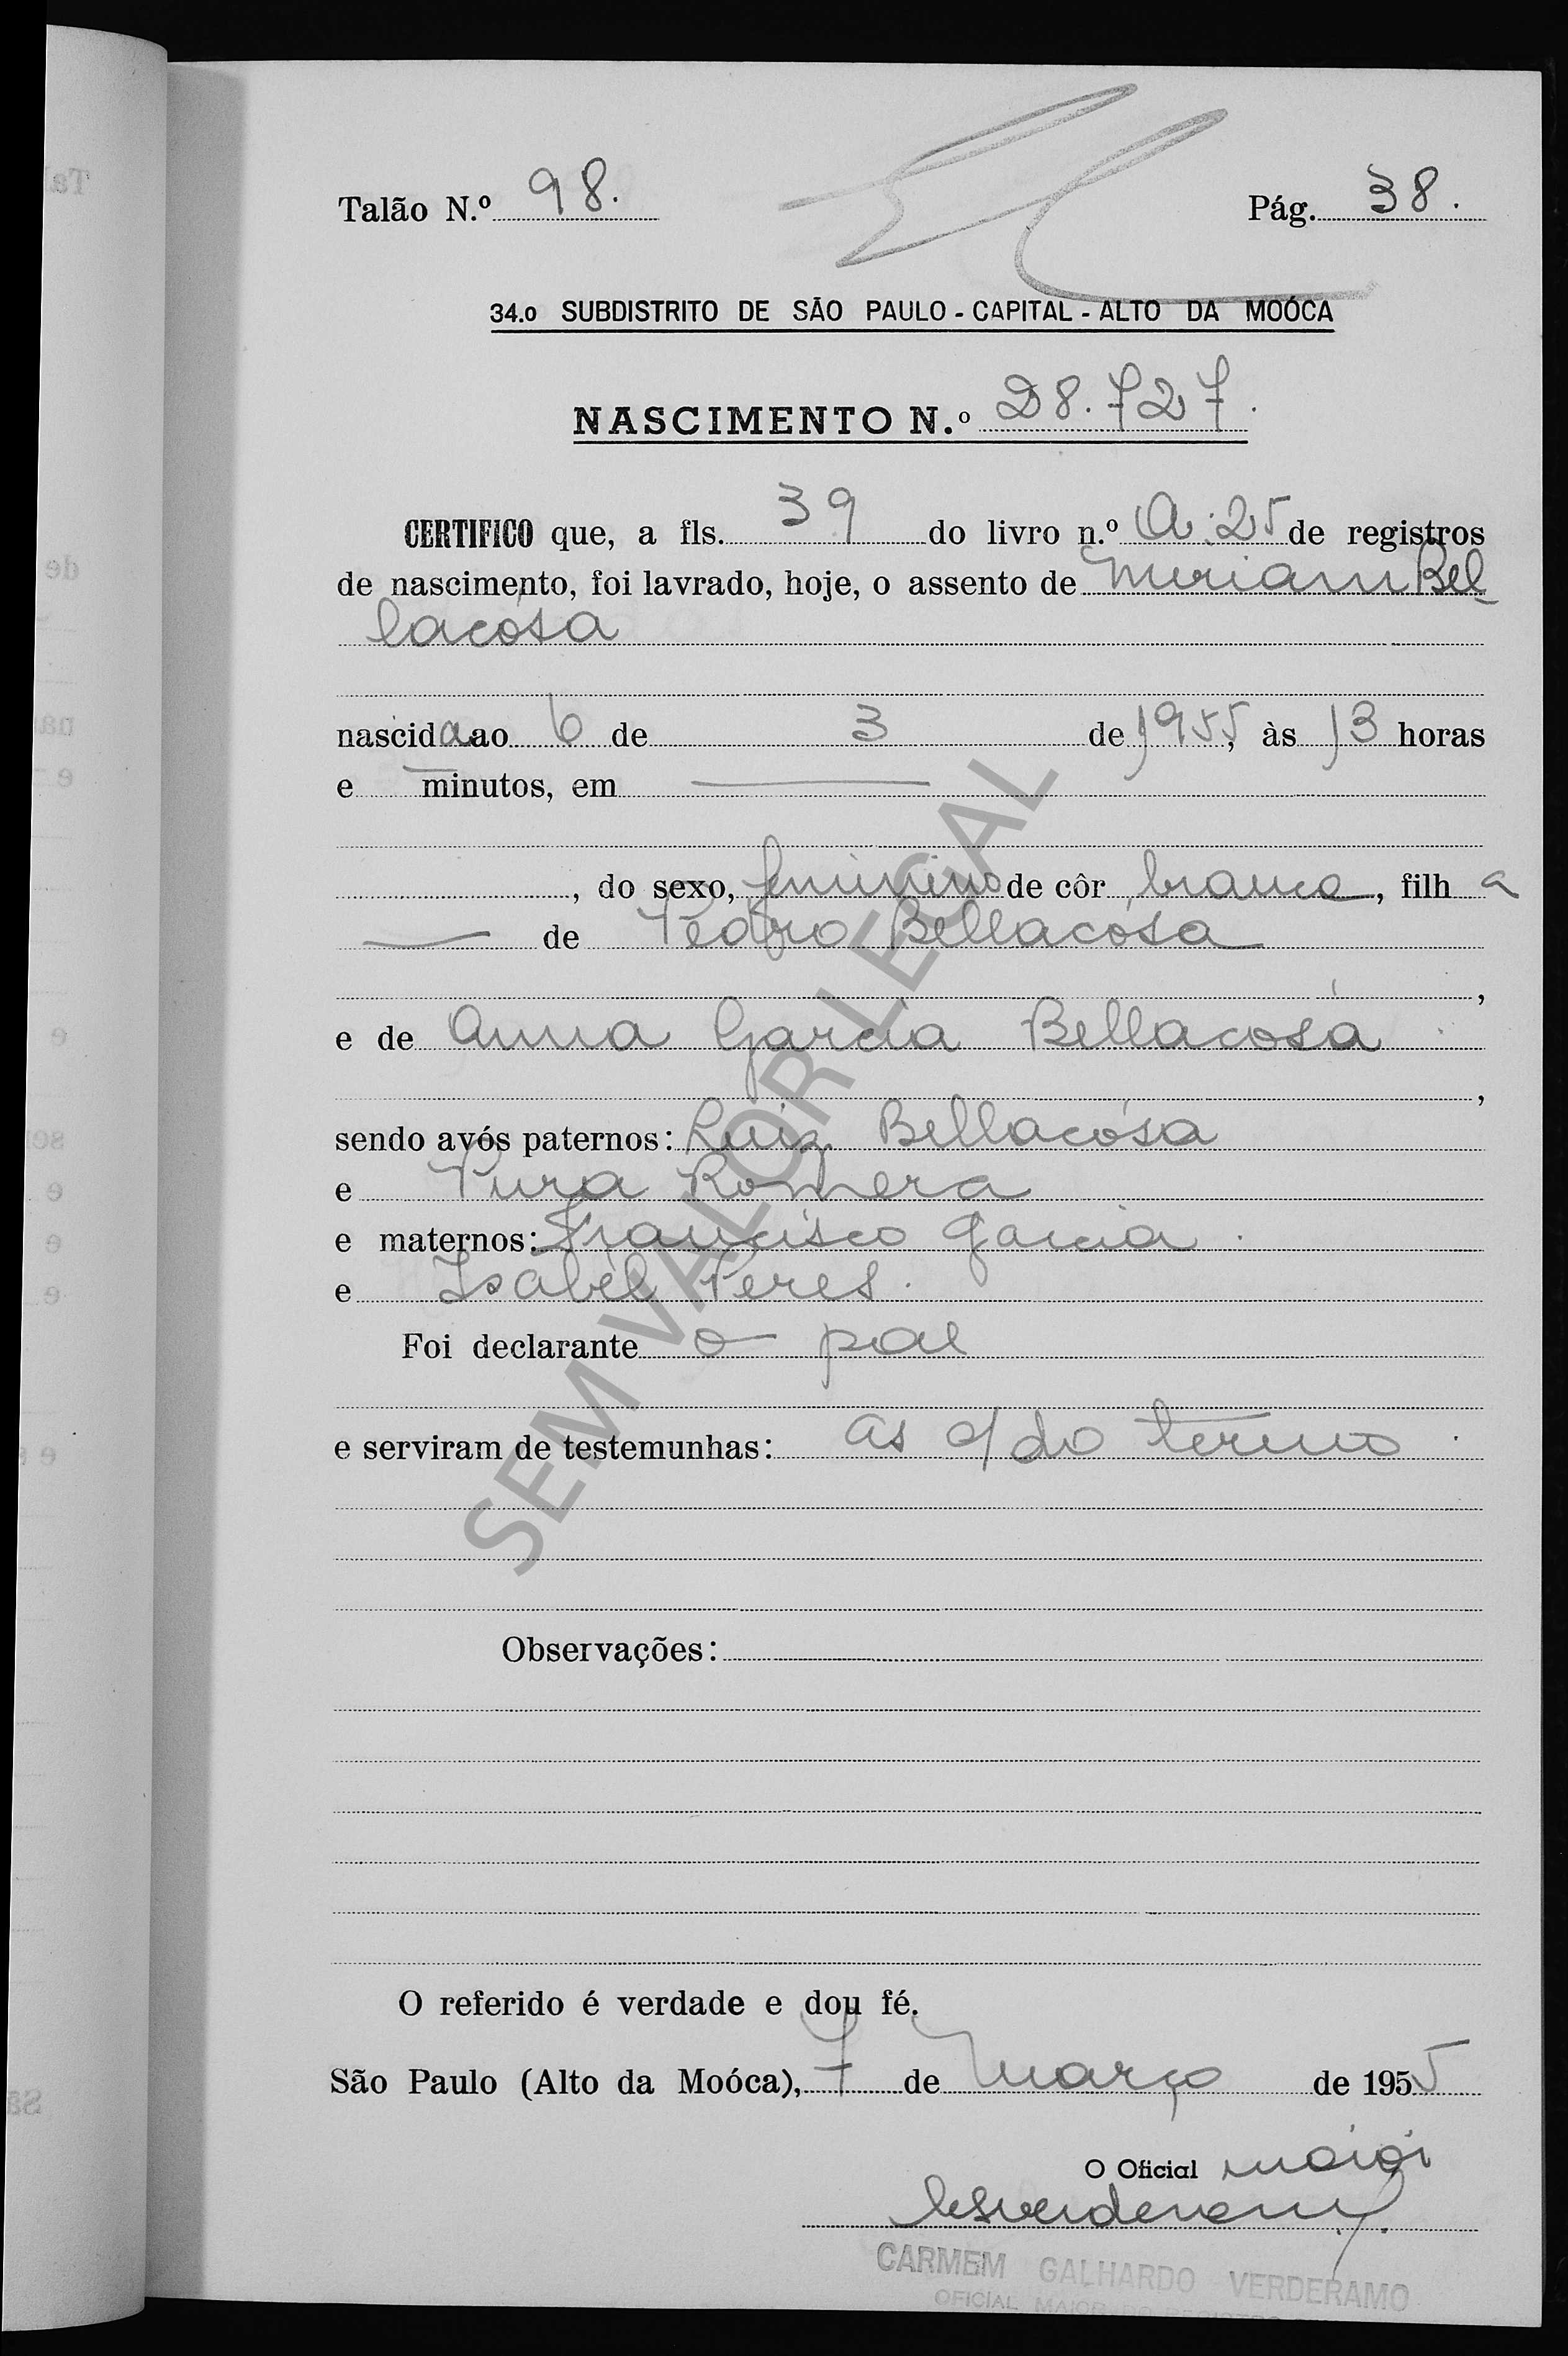 Talão N.º 98. Pág. 38.
34.o SUBDISTRITO DE SÃO PAULO - CAPITAL - ALTO DA MOÓCA
NASCIMENTO N.º 28.727.
CERTIFICO que, a fls. 39 do livro n.º A. 25 de registros
de nascimento, foi lavrado, hoje, o assento de Miriam Bel-
lacósa
nascida ao 6 de 3 de 1955, às 13 horas
e — minutos, em —
, do sexo, feminino de côr branca, filh a
— de Pedro Bellacósa
,
e de Anna Garcia Bellacosa
,
sendo avós paternos: Luiz Bellacósa
e Pura Romera
e maternos: Francisco Garcia.
e Isabel Peres.
Foi declarante o pai
e serviram de testemunhas: as do termo.
Observações:
O referido é verdade e dou fé.
São Paulo (Alto da Moóca), 7 de Março de 1955
O Oficial maior
CARMEM GALHARDO VERDERAMO
OFICIAL MAIOR
SEM VALOR LEGAL